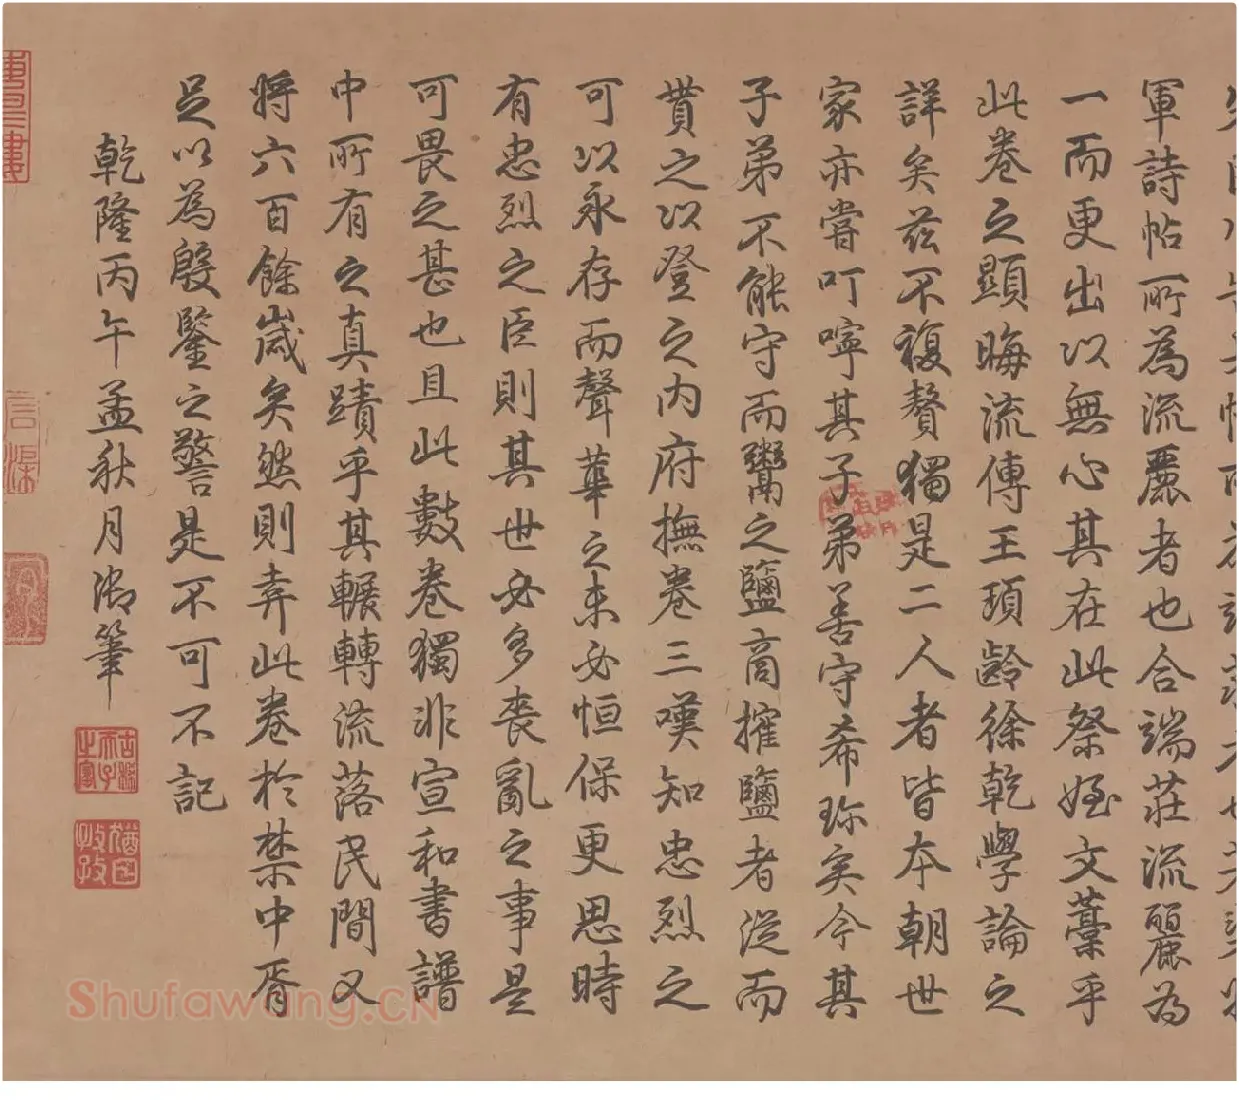 軍詩帖所為流麗者也合端莊流麗為
一而更出以無心其在此祭姪文藁乎
此卷之顯晦流傳王頊齡徐乾學論之
詳矣茲不複贅獨是二人者皆本朝世
家亦嘗叮嚀其子弟善守希珍矣今其
子弟不能守而鬻之鹽商搉鹽者從而
貰之以登之內府撫卷三嘆知忠烈之
可以永存而聲華之未必恒保更思時
有忠烈之臣則其世必多喪亂之事是
可畏之甚也且此數卷獨非宣和書譜
中所有之真蹟乎其輾轉流落民間又
將六百餘歲矣然則弆此卷於禁中胥
足以為殷鑒之警是不可不記
乾隆丙午孟秋月御筆
古稀天子之寶
猶日孜孜
Shufawang.CN